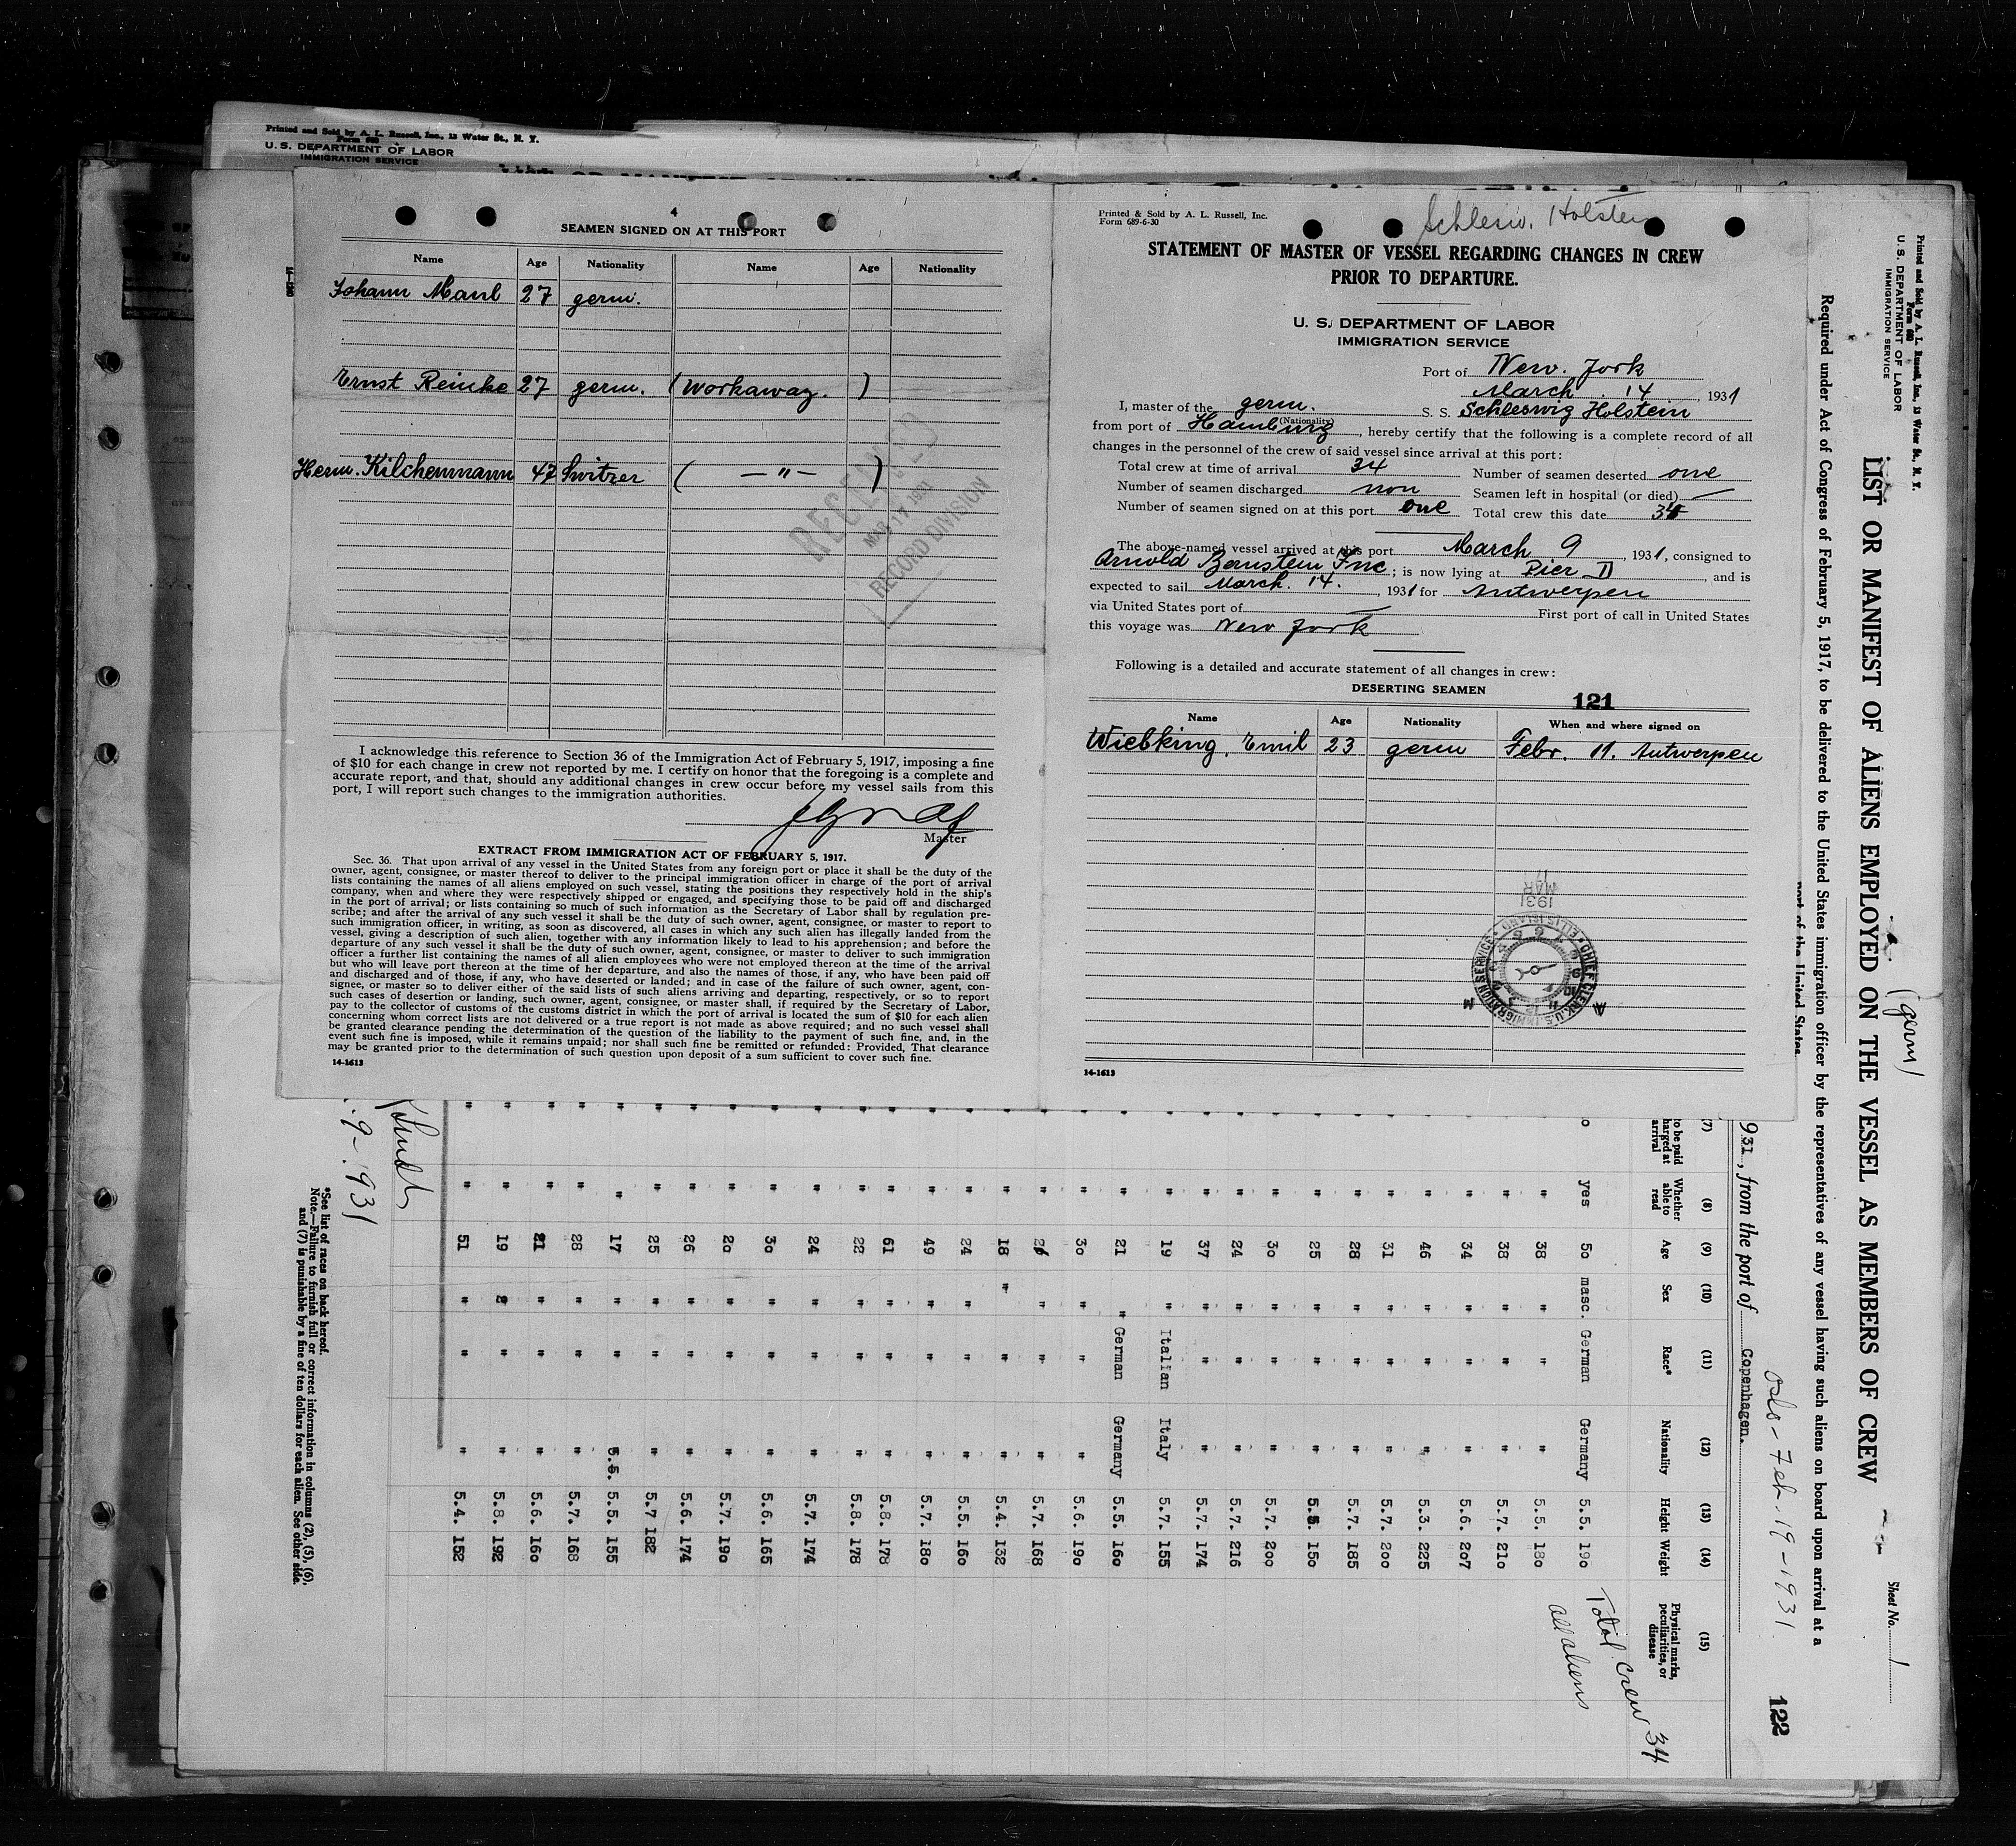 Printed and Sold by A. L. Russell, Inc., 13 Water St., N. Y.
Form 680
U. S. DEPARTMENT OF LABOR
IMMIGRATION SERVICE
4
SEAMEN SIGNED ON AT THIS PORT
Name Age Nationality Name Age Nationality
Johann Maul 27 germ.
Ernst Reinke 27 germ. (Workaway.)
Herm. Kilchenmann 47 Switzer ( — " — )
RECEIVED
MAR 17 1931
RECORD DIVISION
I acknowledge this reference to Section 36 of the Immigration Act of February 5, 1917, imposing a fine
of $10 for each change in crew not reported by me. I certify on honor that the foregoing is a complete and
accurate report, and that, should any additional changes in crew occur before my vessel sails from this
port, I will report such changes to the immigration authorities.
Master
EXTRACT FROM IMMIGRATION ACT OF FEBRUARY 5, 1917.
Sec. 36. That upon arrival of any vessel in the United States from any foreign port or place it shall be the duty of the
owner, agent, consignee, or master thereof to deliver to the principal immigration officer in charge of the port of arrival
lists containing the names of all aliens employed on such vessel, stating the positions they respectively hold in the ship's
company, when and where they were respectively shipped or engaged, and specifying those to be paid off and discharged
in the port of arrival; or lists containing so much of such information as the Secretary of Labor shall by regulation pre-
scribe; and after the arrival of any such vessel it shall be the duty of such owner, agent, consignee, or master to report to
such immigration officer, in writing, as soon as discovered, all cases in which any such alien has illegally landed from the
vessel, giving a description of such alien, together with any information likely to lead to his apprehension; and before the
departure of any such vessel it shall be the duty of such owner, agent, consignee, or master to deliver to such immigration
officer a further list containing the names of all alien employees who were not employed thereon at the time of the arrival
but who will leave port thereon at the time of her departure, and also the names of those, if any, who have been paid off
and discharged and of those, if any, who have deserted or landed; and in case of the failure of such owner, agent, con-
signee, or master so to deliver either of the said lists of such aliens arriving and departing, respectively, or so to report
such cases of desertion or landing, such owner, agent, consignee, or master shall, if required by the Secretary of Labor,
pay to the collector of customs of the customs district in which the port of arrival is located the sum of $10 for each alien
concerning whom correct lists are not delivered or a true report is not made as above required; and no such vessel shall
be granted clearance pending the determination of the question of the liability to the payment of such fine, and, in the
event such fine is imposed, while it remains unpaid; nor shall such fine be remitted or refunded: Provided, That clearance
may be granted prior to the determination of such question upon deposit of a sum sufficient to cover such fine.
14-1613
Printed & Sold by A. L. Russell, Inc.
Form 689-6-30
Schlesw. Holstein
STATEMENT OF MASTER OF VESSEL REGARDING CHANGES IN CREW
PRIOR TO DEPARTURE.
U. S. DEPARTMENT OF LABOR
IMMIGRATION SERVICE
Port of New York
March 14, 1931
I, master of the germ. S. S. Schleswig Holstein
(Nationality)
from port of Hamburg, hereby certify that the following is a complete record of all
changes in the personnel of the crew of said vessel since arrival at this port:
Total crew at time of arrival 34 Number of seamen deserted one
Number of seamen discharged non Seamen left in hospital (or died) —
Number of seamen signed on at this port one Total crew this date 34
The above-named vessel arrived at this port March 9, 1931, consigned to
Arnold Bernstein Inc; is now lying at Pier D, and is
expected to sail March. 14., 1931 for Antwerpen
via United States port of — First port of call in United States
this voyage was New York
Following is a detailed and accurate statement of all changes in crew:
DESERTING SEAMEN
121
Name Age Nationality When and where signed on
Wiebking, Emil 23 germ Febr. 11. Antwerpen
1931
MAR
17
CHIEF CLERK, U.S. IMMIGRATION SERVICE ELLIS ISLAND
14-1613
Printed and Sold by A. L. Russell, Inc., 13 Water St., N. Y.
Form 680
U. S. DEPARTMENT OF LABOR
IMMIGRATION SERVICE
(germ)
Sheet No. 1
LIST OR MANIFEST OF ALIENS EMPLOYED ON THE VESSEL AS MEMBERS OF CREW
Required under Act of Congress of February 5, 1917, to be delivered to the United States immigration officer by the representatives of any vessel having such aliens on board upon arrival at a
port of the United States
Oslo - Feb - 19 - 1931
122
931, from the port of Copenhagen.
(7) (8) (9) (10) (11) (12) (13) (14) (15)
to be paid Whether able to read Age Sex Race* Nationality Height Weight Physical marks, peculiarities, or disease
Total crew 34
all aliens
yes 50 masc. German Germany 5.5. 190
" 38 " " " 5.5. 180
" 38 " " " 5.7. 210
" 34 " " " 5.6. 207
" 46 " " " 5.3. 225
" 31 " " " 5.7. 200
" 28 " " " 5.7. 185
" 25 " " " 5.5. 150
" 30 " " " 5.7. 200
" 24 " " " 5.7. 216
" 37 " " " 5.7. 174
" 19 " Italian Italy 5.7. 155
" 21 " German Germany 5.5. 160
" 30 " " " 5.6. 190
" " " " 5.7. 168
" 18 " " " 5.4. 132
" 24 " " " 5.5. 160
" 49 " " " 5.7. 180
" 61 " " " 5.8. 178
" 22 " " " 5.8. 178
" 24 " " " 5.7. 174
" 30 " " " 5.6. 165
" 20 " " " 5.7. 190
" 26 " " " 5.6. 174
" 25 " " " 5.7 182
" 17 " " 5.5. 5.5. 155
" 28 " " " 5.7. 168
" 21 " " " 5.6. 160
" 19 " " " 5.8. 192
" 51 " " " 5.4. 152
9 - 1931
*See list of races on back hereof.
Note.—Failure to furnish full or correct information in columns (2), (5), (6),
and (7) is punishable by a fine of ten dollars for each alien. See other side.